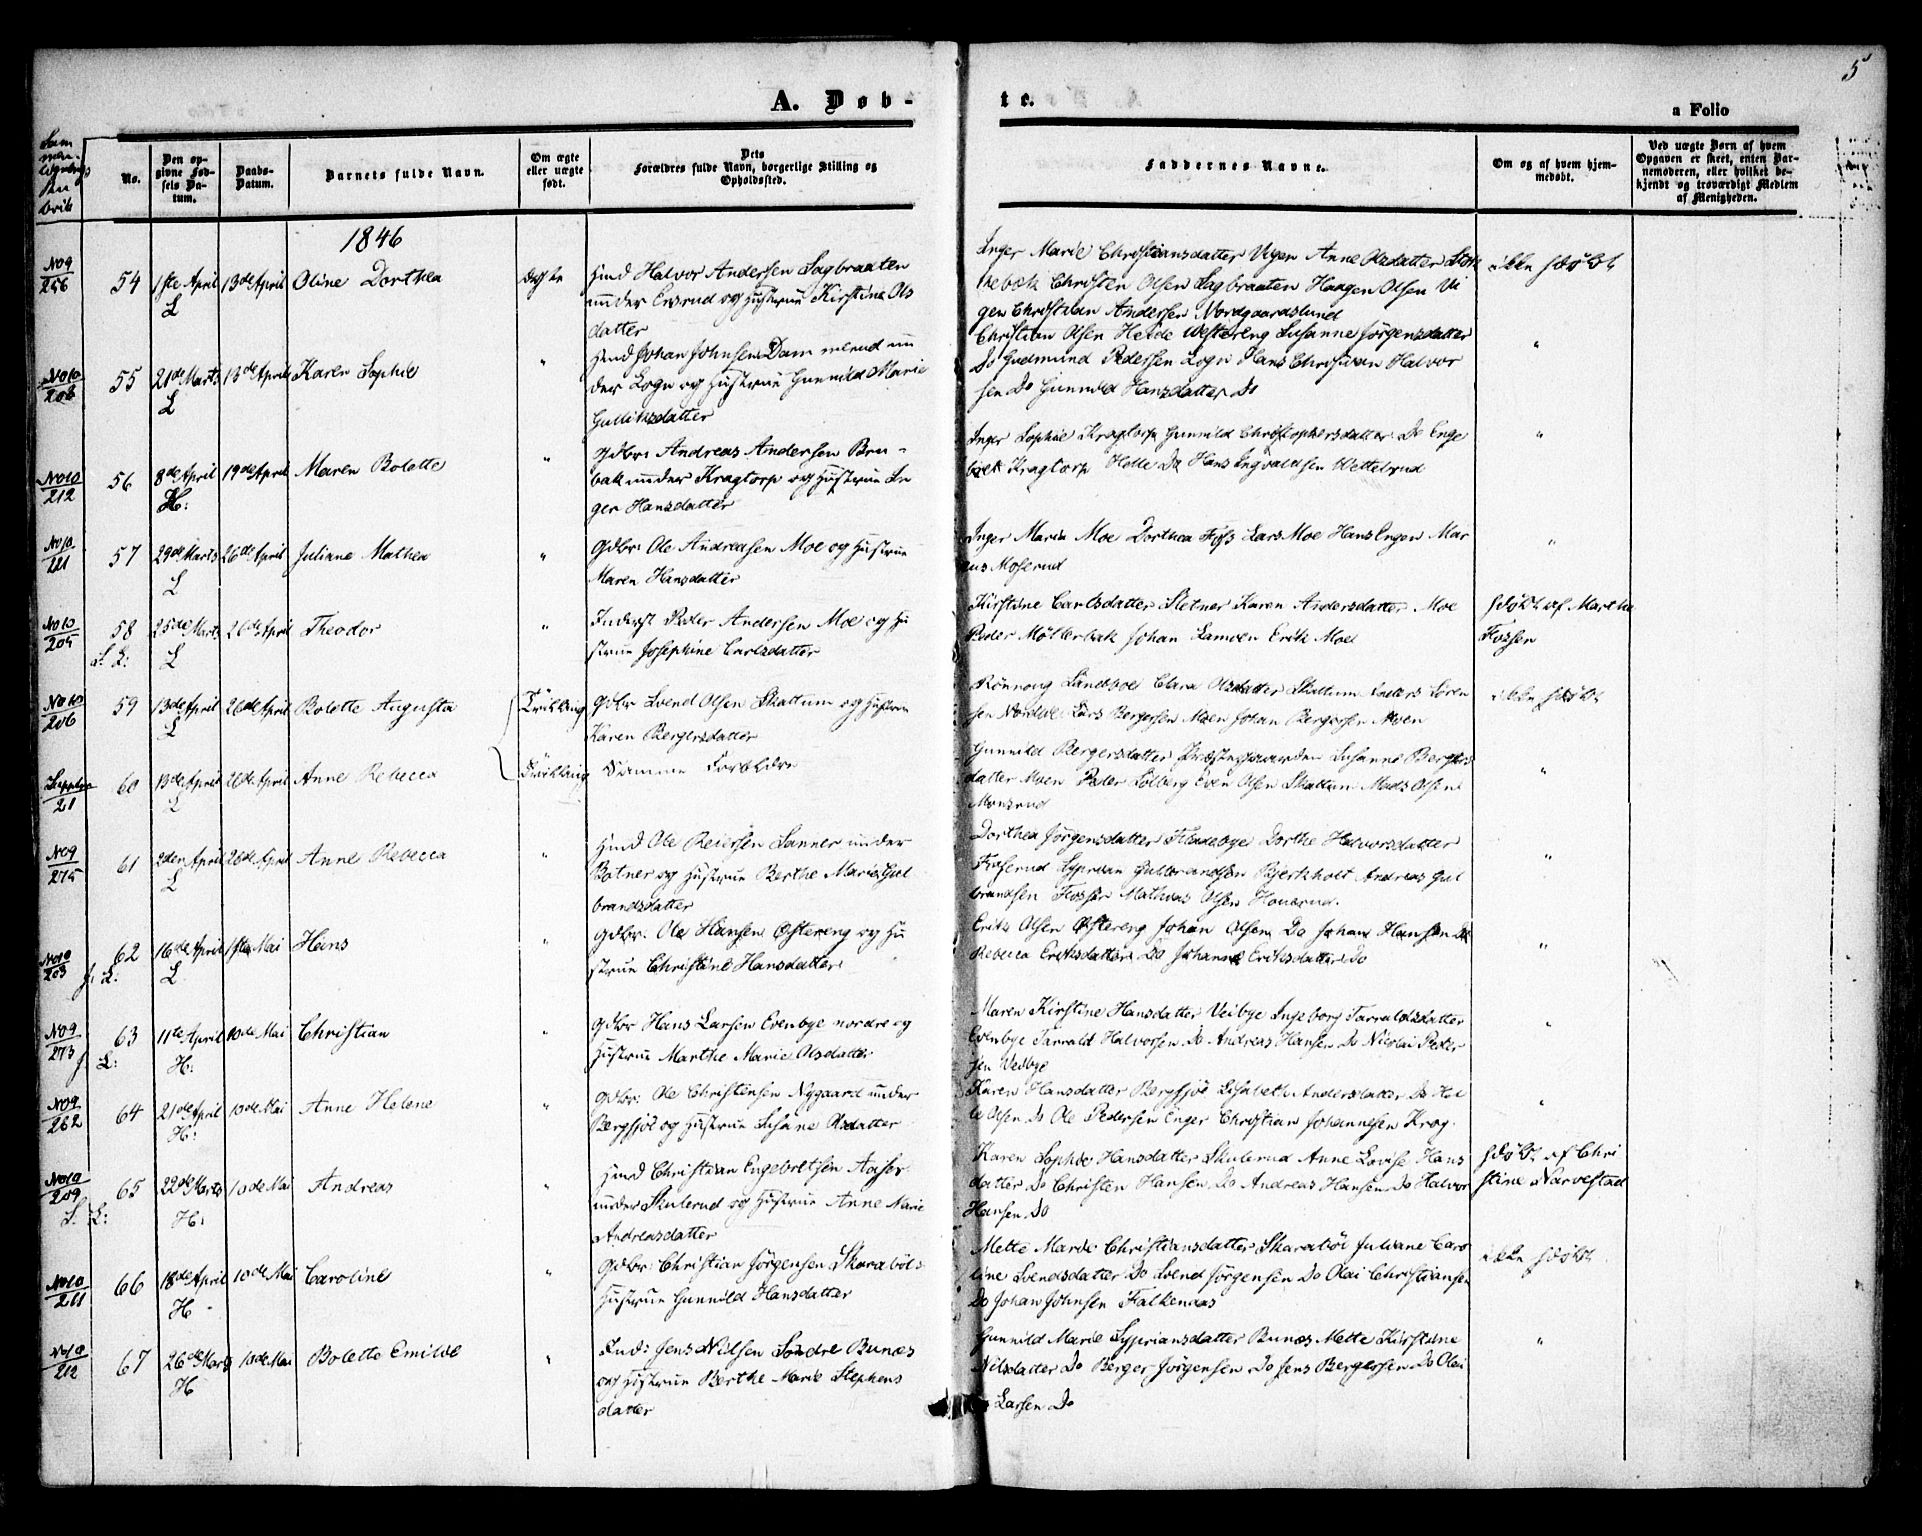 5
A. Døb-
te.
a Folio
No.
Den op-
givne Fød-
sels Da-
tum.
Daabs-
Datum.
Barnets fulde Navn.
Om ægte
eller uægte
født.
Dets
Forældres fulde Navn, borgerlige Stilling og
Opholdssted.
Faddernes Navne.
Om og af hvem hjem-
medøbt.
Ved uægte Børn af hvem
Opgaven er skeet, enten Bar-
nemoderen, eller hvilket be-
kjendt og troværdigt Medlem
af Menigheden.
1846
No 9
256
54 1ste April 13de April Oline Dorthea ægte
L
Huusmd Halvor Andersen Sagbraaten
under Evsrud og Hustrue Kirstine Ols
datter
Inger Marie Christiansdatter Vigen Anne Olsdatter
Christen Olsen Sagbraaten Haagen Olsen Vi
gen Christian Andersen Nordgaardslund
ikke hjdøbt
No 10
208
55 21de Marts 13de April Karen Sophie "
L
Johan Johnsen un
der Logn og Hustrue Gunnild Marie
Gulliksdatter
Christian Olsen Heide Westereng Susanne Jørgensdatter
Do Gudmund Pedersen Logn Hans Christian Halvor
sen Do Gunnild Hansdatter Do
"
No 10
212
56 8de April 19de April Maren Bolette "
H:
Gdbr: Andreas Andersen Bru-
bak under Kragtorp og Hustrue In
ger Hansdatter
Inger Sophie Kragtorp Gunnild Christophersdatter Do Enge
bret Kragtorp Helle Do Hans Ingvaldsen Wettebrud
"
No 10
221
57 29de Marts 26de April Juliane Mathea "
L
Gdbr: Ole Andreasen Moe og Hustrue
Maren Hansdatter
Inger Maria Moe Dorthea Foss Lars Moe Hans Engen Mar
ius Moserud
"
No 10
205
58 25de Marts 26de April Theodor "
L
Inderst Peder Andersen Moe og Hu
strue Josephine Carlsdatter
Kirstine Carlsdatter Sletner Karen Andersdatter Moe
Peder Møllerbak Johan Lamoen Erik Moe
hjdøbt af Marthe
Fossen
No 10
206
59 13de April 26de April Bolette Augusta Tvilling
L
Gdbr Svend Olsen Skattum og Hustrue
Karen Bergersdatter
Rønnaug Sandboe Clara Olsdatter Skattum Anders Søren
sen Nordbe Lars Bergersen Moen Johan Bergersen Moen
ikke hjdøbt
21
60 13de April 26de April Anne Rebecca Tvilling
L
Samme Forældre
Gunnild Bergersdatter Præstegaarden Susanne Bergers
datter Moen Peder Solberg Even Olsen Skattum Mads Olsen
Monsrud
"
No 9
275
61 2den April 26de April Anne Rebecca "
L
Ole Reiersen Sanner under
Botner og Hustrue Berthe Marie Gul
brandsdatter
Dorthea Jørgensdatter Fladebye Dorthe Halvorsdatter
Froserud Syprian Gulbrandsen Bjerkholt Andreas Gul
brandsen Fosser Mathias Olsen Houerud.
"
No 9
203
62 16de April 1ste Mai Hans "
L
Gdbr: Ole Hansen Østereng og Hu
strue Christine Hansdatter
Erik Olsen Østereng Johan Olsen Do Johan Hansen Do
Rebecca Eriksdatter Do Johanne Eriksdatter Do
"
No 9
273
63 11te April 10de Mai Christian "
H:
Gdbr Hans Larsen Evenbye nordre og
Hustrue Marthe Marie Olsdatter
Maren Kirstine Hansdatter Veibye Ingeborg Tarraldsdatter
Evenbye Tarrald Halvorsen Do Andreas Hansen Do Nicolai Peder
sen Vedbye
"
No 9
262
64 21de April 10de Mai Anne Helene "
H:
Gdbr: Ole Christensen Nygaard under
Bergsjøe og Hustrue Susane Olsdatter
Karen Hansdatter Bergsjøe Elisabeth Andersdatter Do Hel
le Olsen Do Ole Pedersen Enger Christian Johannesen Krog.
"
No 10
209
65 22de Marts 10de Mai Andreas "
H:
Christian Engebretsen
under Skulerud og Hustrue Anne Marie
Andreasdatter
Karen Sophie Hansdatter Skulerud Anne Lovise Hans
datter Do Christen Hansen Do Andreas Hansen Do Halvor
Hansen Do
hjdøbt af Chri
stine Narvestad
No 10
211
66 18de April 10de Mai Caroline "
H
Gdbr: Christian Jørgensen Skarabøl
Hustrue Gunnild Hansdatter
Mette Marie Christiansdatter Juliane Caro
line Svendsdatter Do Svend Jørgensen Do Olai Christiansen
Do Johan Johnsen Falkenaas
ikke hjdøbt
No 10
212
67 26de Marts 10de Mai Bolette Emilie "
H
Ind: Jens Nilsen Søndre Bunæs
og Hustrue Berthe Marie Stephens
datter
Gunnild Marie Sypriansdatter Bunæs Mette Kirstine
Nilsdatter Do Berger Jørgensen Do Jens Bergersen Do Olai
Larsen Do
"